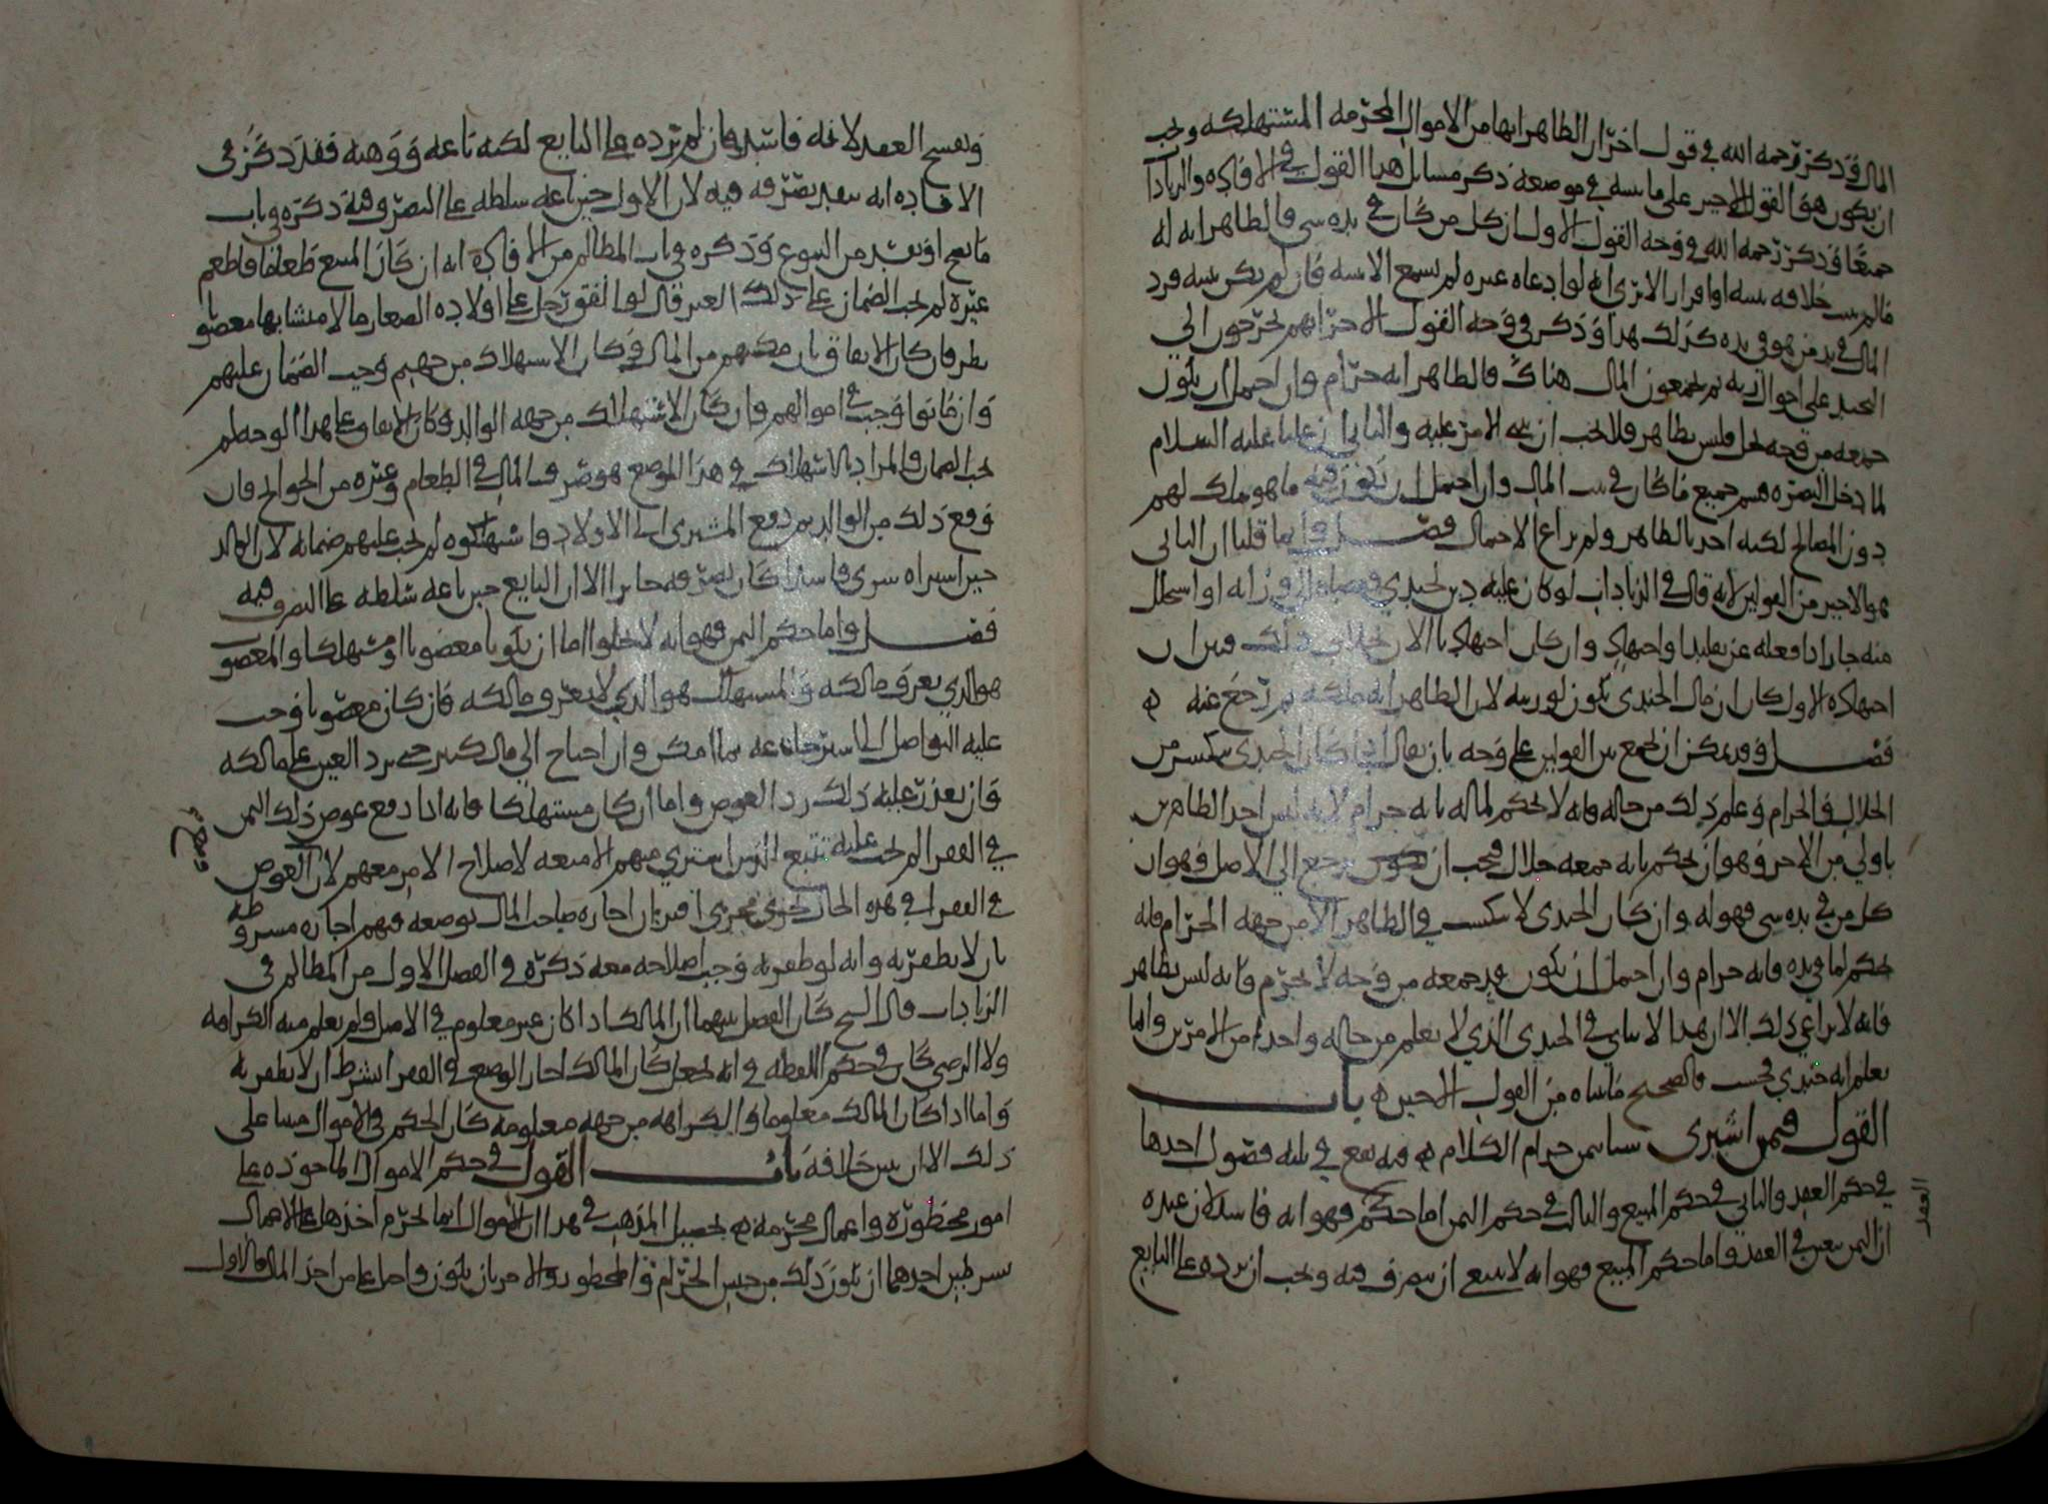 المال وذكر رحمه الله في قول اخر ان الظاهر انها من الاموال المحرمه المستهلكه ويجب
ان يكون هو القول الاخير على ما بينه في موضعه ذكر مسائل هذا القول في الافاده والزيادات
جميعا وذكر رحمه الله في وجه القول الاول ان كل من كان في يده شي فالظاهر انه له
مالم يبين خلافه بينه او اقرار الا ترى انه لو ادعاه غيره لم يسمع الا ببينه فان لم يكن بينه فرد
المال في يد من هو في يده كذلك هذا وذكر في وجه القول الاخر انهم يخرجون الى
على احوال ثم يجمعون المال هناك فالظاهر انه حرام وان احتمل ان يكون
جمعه من وجه يحل وليس بظاهر فلا يجب ان يبنى الامر عليه والثاني ان عليا عليه السلام
لما دخل البصره قسم جميع ما كان في بيت المال وان احتمل ان يكون فيه ما هو ملك لهم
دون المصالح لكنه اخذ بالظاهر ولم يراع الاحتمال فصل وانما قلنا ان الثاني
هو الاخير من القولين لانه قال في الزيادات لو كان عليه دين لجندي فقضاه الى ورثته او استحل
منه جاز اذا فعله عن تقليد او اجتهاد وان كان اجتهادنا الان بخلاف ذلك فبين ان
اجتهاده الاول كان ان مال الجندي يكون لورثته لان الظاهر انه ملكه ثم رجع عنه
فصل وقد يمكن ان يجمع بين القولين على وجه بان يقال اذا كان الجندي يكتسب من
الحلال والحرام وعلم ذلك من حاله فانه لا يحكم لماله بانه حرام لانه ليس احد الظاهرين
باولى من الاخر وهو ان يحكم بانه جمعه حلال فيجب ان يرجع الى الاصل فهو ان
كل من في يده شي فهو له وان كان الجندي لا يكتسب في الظاهر الا من جهه الحرام فانه
يحكم لما في يده فانه حرام وان احتمل ان يكون قد جمعه من وجه لا يحرم فانه ليس بظاهر
فانه لا يراعى ذلك الا ان هذا لا يتاتى في الجندي الذي لا يعلم من حاله واحد من الامرين وانما
يعلم انه جندي فحسب فالصحيح ما بيناه من القول الاخير باب
القول فيمن اشترى شيا بثمن حرام الكلام فيه يقع في ثلثه فصول احدها
في حكم العقد والثاني في حكم المبيع والثالث في حكم الثمن اما حكم فهو انه فاسد لان عنده
العقد
ان الثمن يتعين في العقد واما حكم المبيع فهو انه لا يسع ان يتصرف فيه ويجب ان يرده على البايع
ويفسخ العقد لانه فاسد فان لم يرده على البايع لكنه باعه ووهبه فقد ذكر في
الافاده انه ينفذ تصرفه فيه لان الاول حين باعه سلطه على التصرف فيه ذكره في باب
ما يصح او يفسد من البيوع وذكره في باب المظالم من الافاده انه ان كان المبيع طعاما فاطعم
غيره لم يجب الضمان على ذلك الغير قال لو انفق رجل على اولاده الصغار مالا متشابها مغصوبا
نظر فان كان الانفاق بان مكنهم من المال وكان الاستهلاك من جهتهم وجب الضمان عليهم
وان ماتوا وجب في اموالهم وان كان الاستهلاك من جهه الوالد وكان الانفاق على هذا الوجه لم
يجب الضمان والمراد بالاستهلاك في هذا الموضع هو صرف المال في الطعام وغيره من الحوائج فان
وقع ذلك من الوالد ثم دفع المشترى الى الاولاد واستهلكوه لم يجب عليهم ضمانه لان الوالد
حين اشتراه شرى فاسدا كان تصرفه جايزا الا ان البايع حين باعه سلطه على التصرف فيه
فصل واما حكم الثمن فهو انه لا يخلوا اما ان يكون مغصوبا او مستهلكا والمغصوب
هو الذي يعرف مالكه والمستهلك هو الذي لا يعرف مالكه فان كان مغصوبا وجب
عليه التواصل الى استرجاعه بما امكن وان احتاج الى مال كثير حتى يرد العين على مالكه
فان تعذر عليه ذلك رد العوض واما ان كان مستهلكا فانه اذا دفع عوض ذلك الثمن
في الفقرا لم يجب عليه تتبع الذين اشترى منهم الامتعه لاصلاح الامر معهم لان العوض
في الفقرا في هذه الحال يجري مجرى اقتران اجازه صاحب المال بوضعه فيهم اجازه مشروطه
بان لا يظفر به وانه لو ظفر به وجب اصلاحه معه ذكره في الفصل الاول من المظالم في
الزيادات قال الشيخ كان الفصل بينهما ان المالك اذا كان غير معلوم في الاصل ولم يعلم منه الكراهه
ولا الرضى كان في حكم اللقطه في انه يجعل كان المالك اجاز الوضع في الفقرا بشرط ان لا يظفر به
واما اذا كان المالك معلوما والكراهه من جهته معلومه كان الحكم في الاموال مبنيا على
ذلك الا ان يبين خلافه باب القول في حكم الاموال الماخوذه على
امور محظوره واعمال محرمه تحصيل المذهب في هذا ان الاموال انما يحرم اخذها على الاعمال
بشرطين احدهما ان يكون ذلك من جنس الحرام والمحظور والاخر بان يكون واجبا على من اخذ المال فالاول